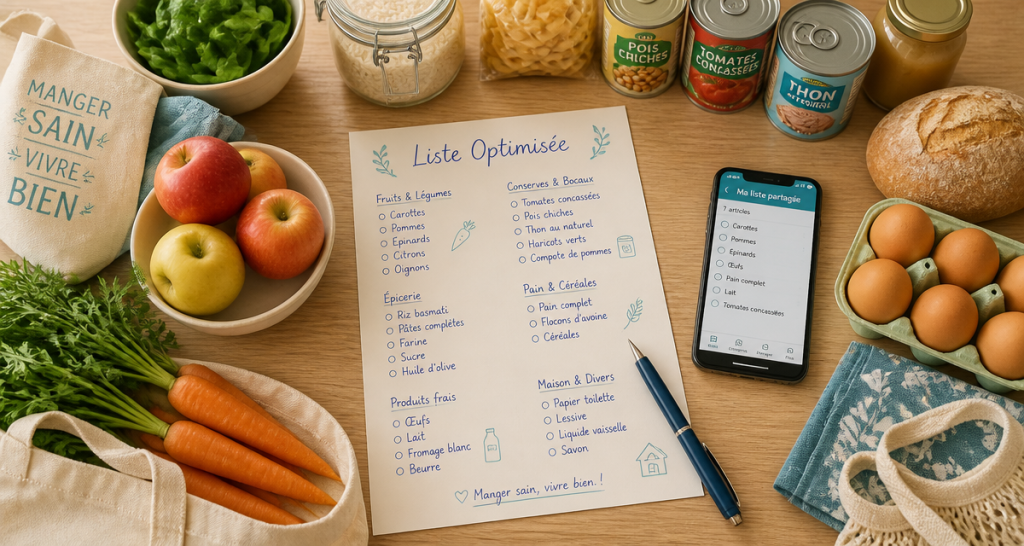 MANGER
SAIN
VIVRE
BIEN
POIS
CHICHES
TOMATES
CONCASSÉES
THON
Liste Optimisée
Fruits & Légumes
Carottes
Pommes
Épinards
Citrons
Oignons
Épicerie
Riz basmati
Pâtes complètes
Farine
Sucre
Huile d'olive
Produits frais
Œufs
Lait
Fromage blanc
Beurre
Conserves & Bocaux
Tomates concassées
Pois chiches
Thon au naturel
Haricots verts
Compote de pommes
Pain & Céréales
Pain complet
Flocons d'avoine
Céréales
Maison & Divers
Papier toilette
Lessive
Liquide vaisselle
Savon
Manger sain, vivre bien.!
Ma liste partagée
7 articles
Carottes
Pommes
Épinards
Œufs
Pain complet
Lait
Tomates concassées